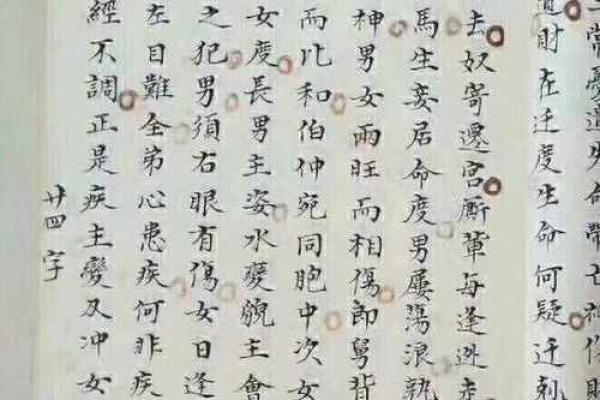 常憂遺失命帶亡神傷財
道財在迁度生命何疑迁剋
去奴寄遷宮厮輩每逢迯走
馬生妾居命度男屢蕩浪執
神男女兩旺而相傷郎舅背
而比和伯仲宛同胞中次女
女度長男主姿水孽貌主會
之犯男須右眼有傷女日逢
左目難全弟心患疾何非疾
經不調正是疾主變及冲女
廿四字